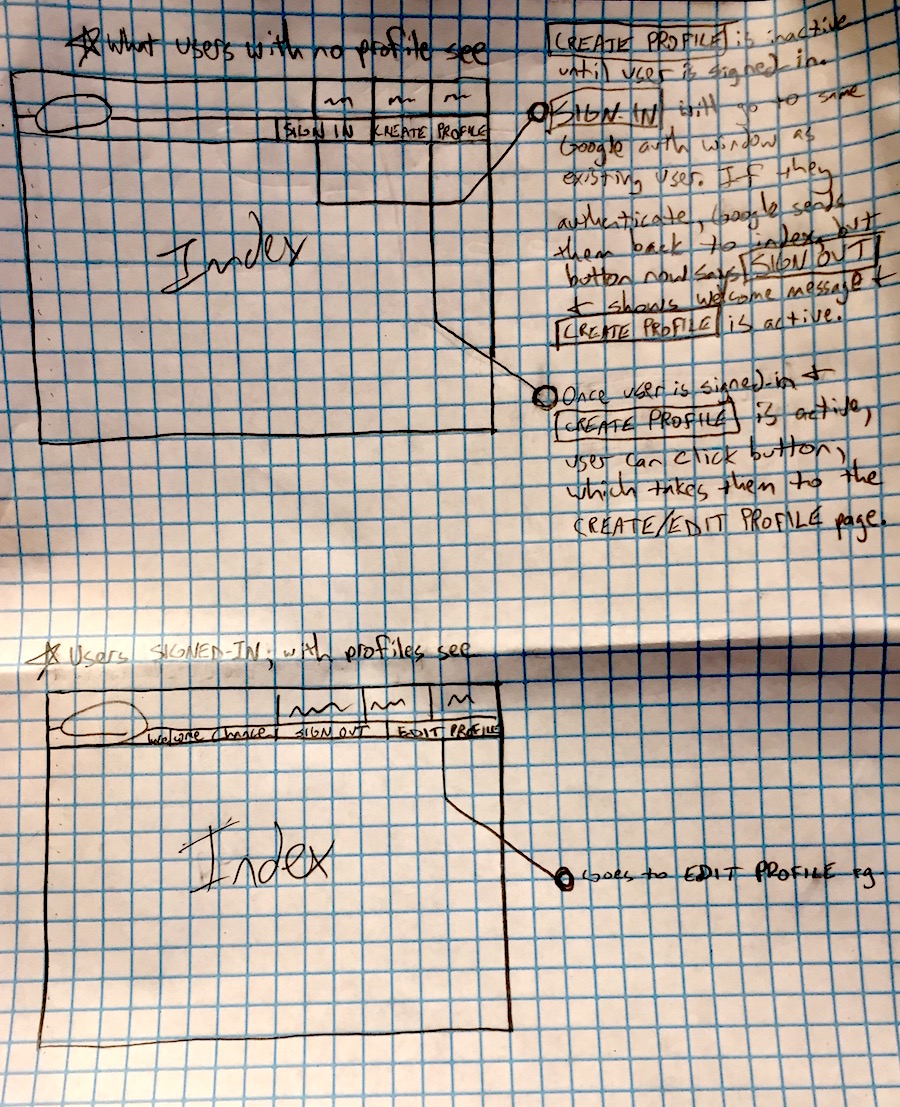 What users with no profile see
SIGN IN CREATE PROFILE
Index
CREATE PROFILE is inactive
until user is signed-in.
SIGN IN will go to same
Google auth window as
existing user. If they
authenticate, Google sends
them back to index, but
button now says SIGN OUT
+ shows welcome message +
CREATE PROFILE is active.
Once user is signed-in +
CREATE PROFILE is active,
user can click button,
which takes them to the
CREATE/EDIT PROFILE page.
Users SIGNED-IN, with profiles see
Welcome Chance! SIGN OUT EDIT PROFILE
Index
Goes to EDIT PROFILE pg